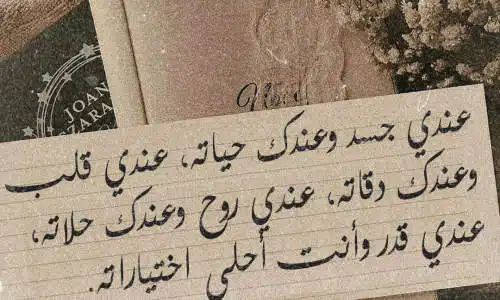 JOAN
عندي جسد وعندك حياته، عندي قلب
وعندك دقاته، عندي روح وعندك حلاته،
عندي قدر وأنت أحلى اختياراته.